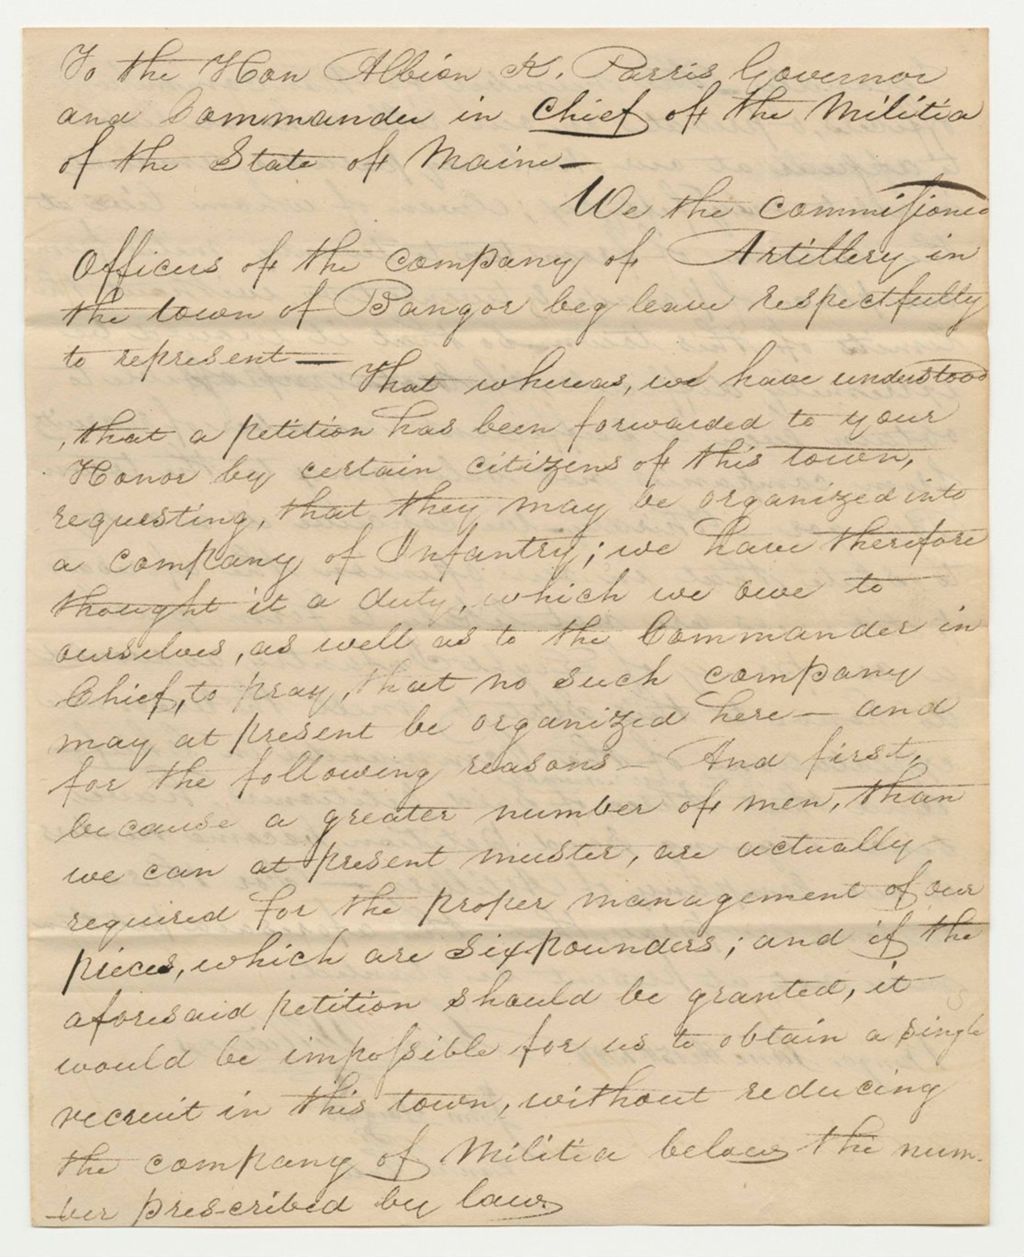 To the Hon Albion K. Parris Governor
and Commander in Chief of the Militia
of the State of Maine—
We the commissioned
Officers of the company of Artillery in
the town of Bangor beg leave respectfully
to represent—
That whereas, we have understood
, that a petition has been forwarded to your
Honor by certain citizens of this town,
requesting, that they may be organized into
a company of Infantry; we have therefore
thought it a duty, which we owe to
ourselves, as well as to the Commander in
Chief, to pray, that no such company
may at present be organized here— and
for the following reasons— And first,
because a greater number of men, than
we can at present muster, are actually
required for the proper management of our
pieces, which are sixpounders; and if the
aforesaid petition should be granted, it
would be impossible for us to obtain a single
recruit in this town, without reducing
the company of Militia below the num-
ber prescribed by law